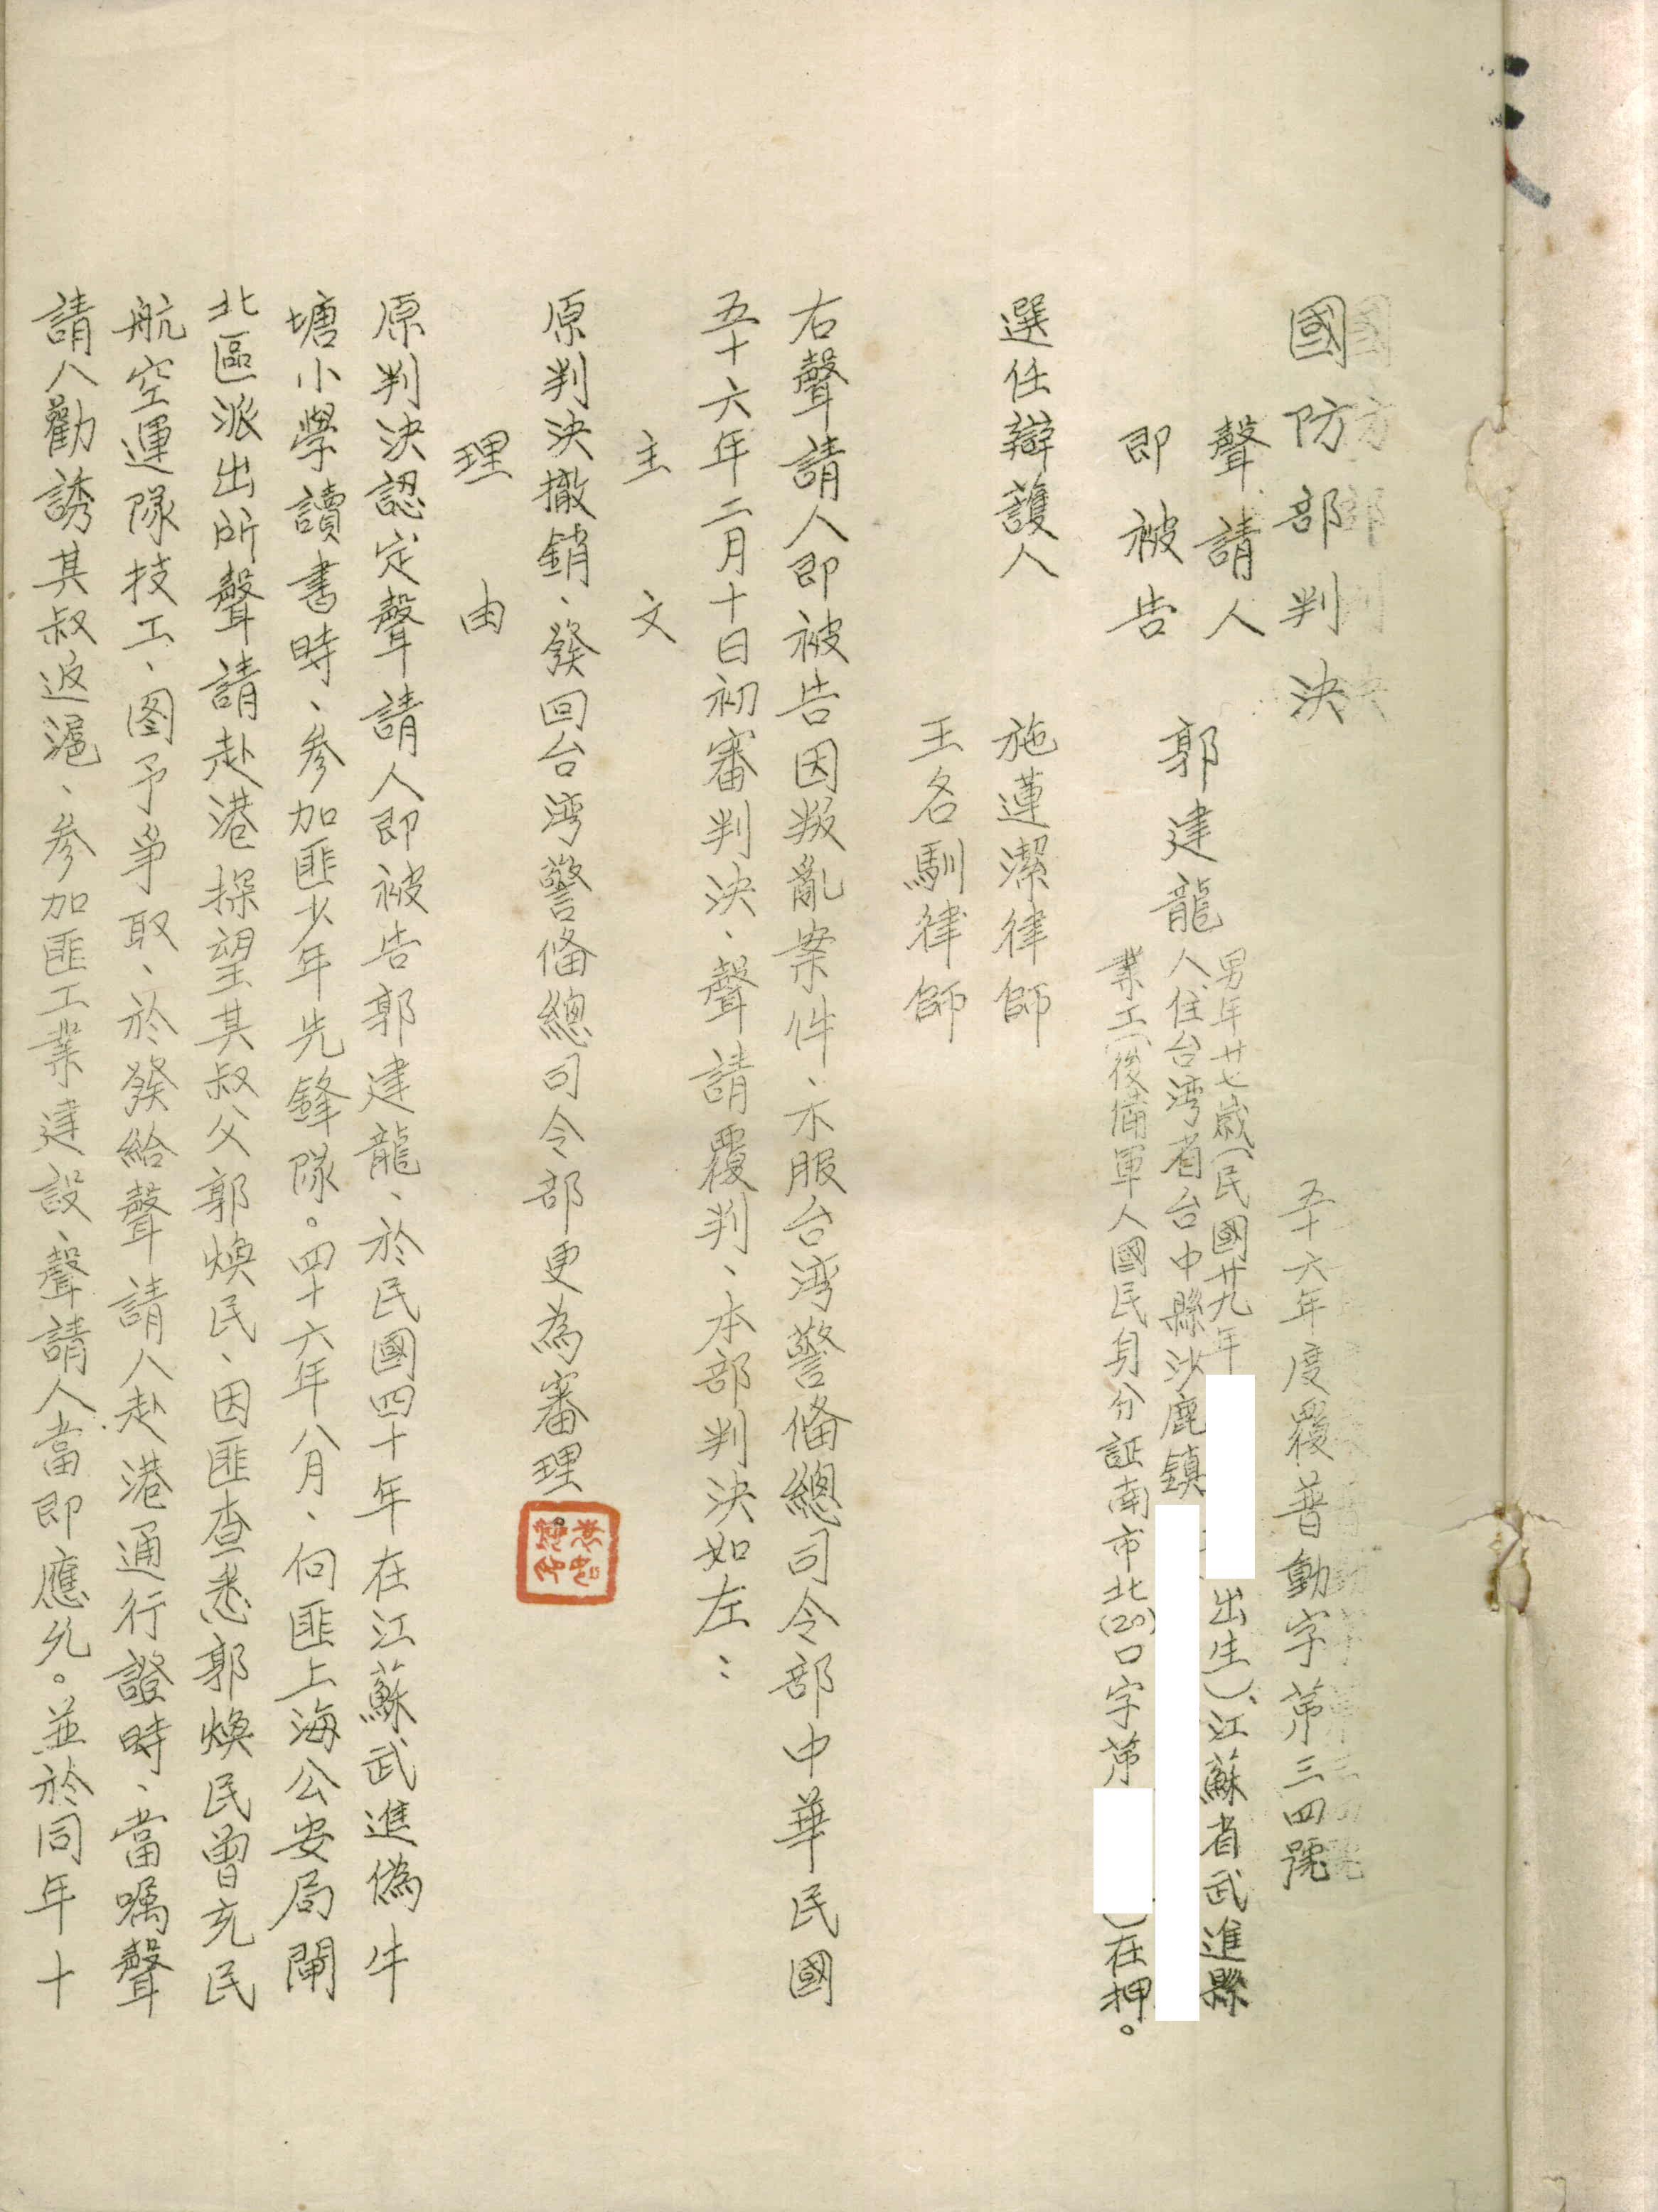 國防部判決
五十六年度覆普動字第三四號
聲請人
即被告
郭建龍
男年廿七歲(民國廿九年
出生)、江蘇省武進縣
人、住台湾省台中縣沙鹿鎮
業工(後備軍人國民身分証南市北(20)口字第
)在押。
選任辯護人
施蓮潔律師
王名馴律師
右聲請人即被告因叛亂案件、不服台湾警备總司令部中華民國
五十六年二月十日初審判決、聲請覆判、本部判決如左：
主文
原判決撤銷、發回台湾警备總司令部更為審理。
理由
原判決認定聲請人即被告郭建龍、於民國四十年在江蘇武進偽牛
塘小學讀書時、參加匪少年先鋒隊。四十六年八月、向匪上海公安局閘
北區派出所聲請赴港探望其叔父郭煥民、因匪查悉郭煥民曾充民
航空運隊技工、图予爭取、於發給聲請人赴港通行證時、當嘱聲
請人勸誘其叔返滬、參加匪工業建設、聲請人當即應允。並於同年十